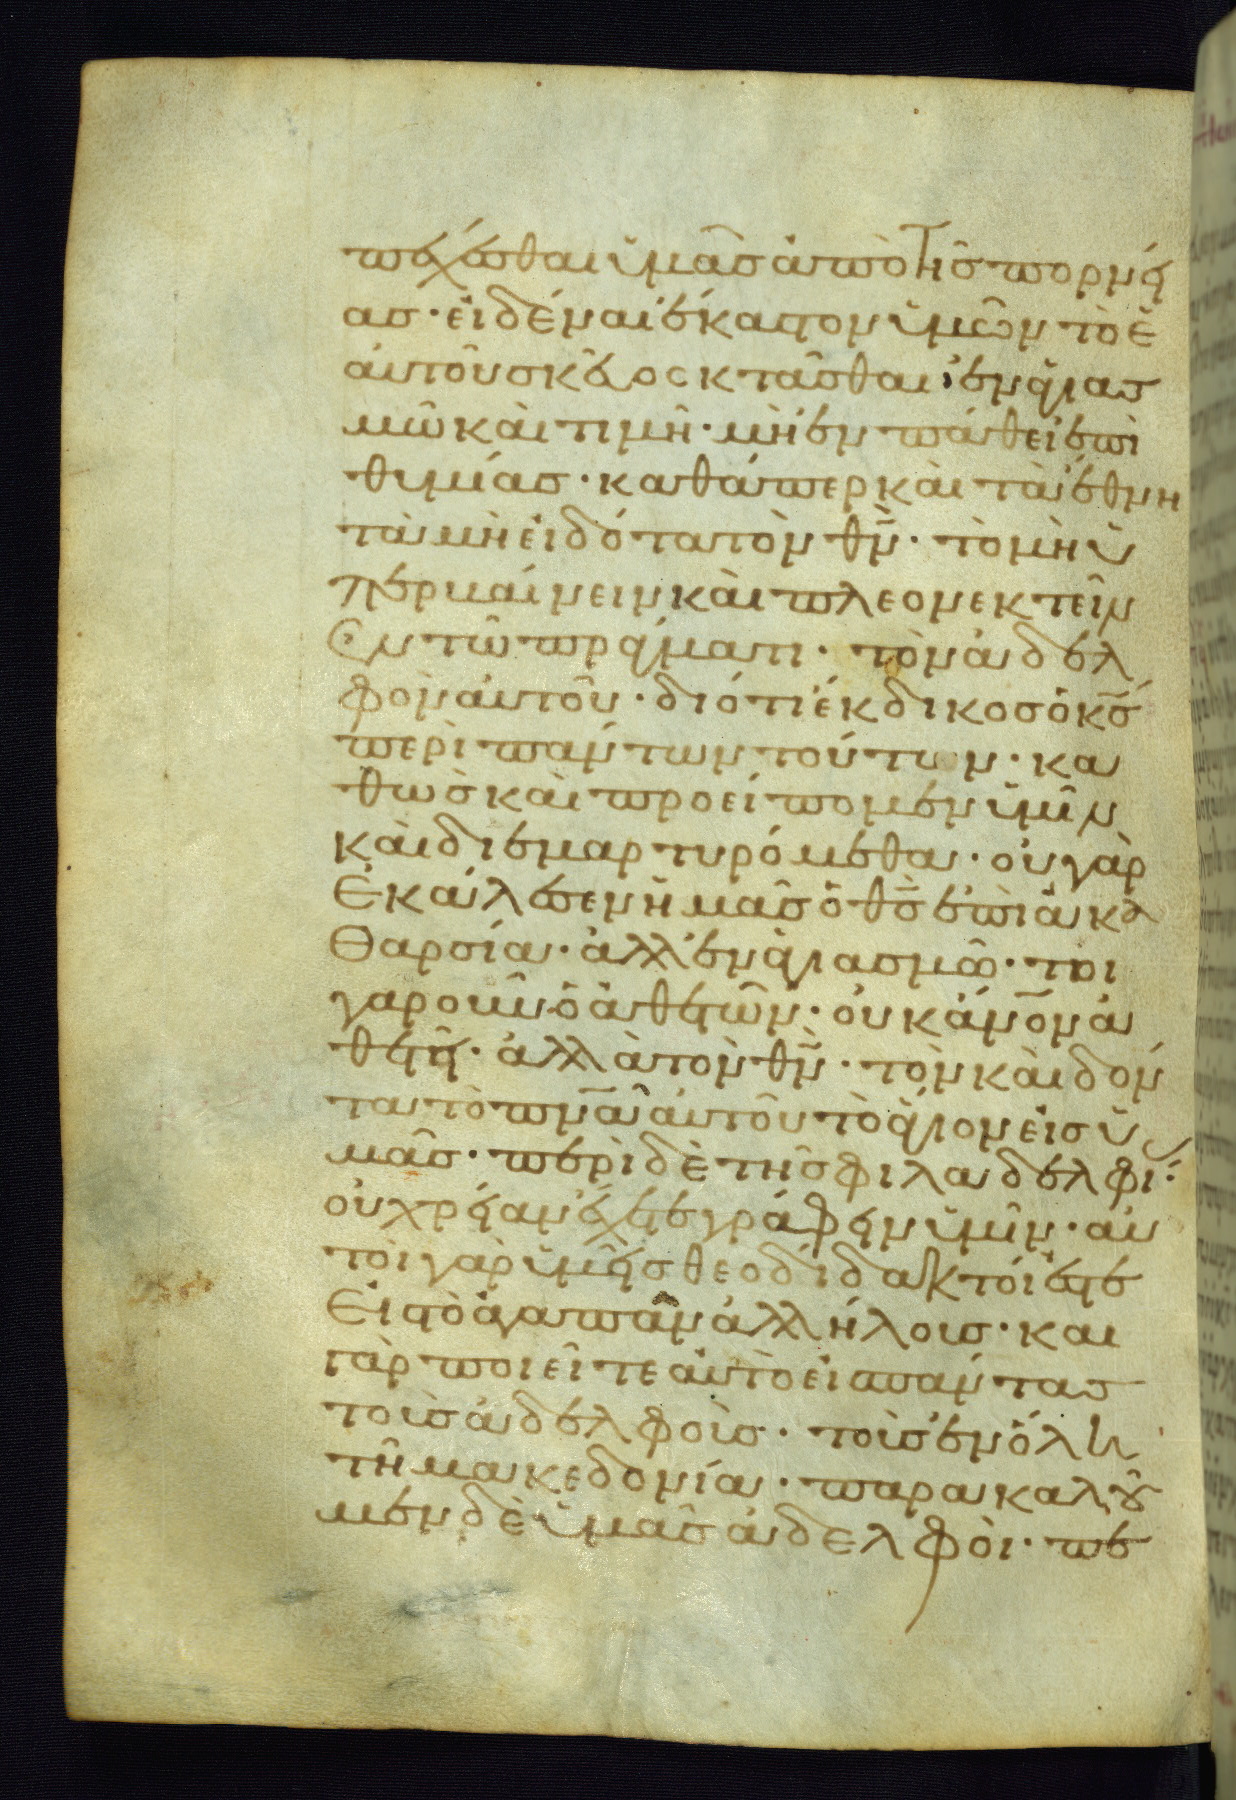 πέχεσθαι ὑμᾶς ἀπὸ τῆς πορνεί
ας· εἰδέναι ἕκαστον ὑμῶν τὸ ἑ
αυτοῦ σκεῦος κτᾶσθαι ἐν ἁγιασ
μῶ καὶ τιμῆ· μὴ ἐν πάθει ἐπι
θυμίας· καθάπερ καὶ τὰ ἔθνη
τὰ μὴ εἰδότα τὸν θ̅ν̅· τὸ μὴ ὑ
περβαίνειν καὶ πλεονεκτεῖν
ἐν τῶ πράγματι· τὸν ἀδελ
φὸν αὐτοῦ· διότι ἔκδικος ὁ κ̅ς̅
περὶ πάντων τούτων· κα
θὼς καὶ προείπομεν ὑμῖν
καὶ διεμαρτυρόμεθα· οὐ γὰρ
ἐκάλεσεν ἡμᾶς ὁ θ̅ς̅ ἐπὶ ἀκα
θαρσία· ἀλλ' ἐν ἁγιασμῶ· τοι
γαροῦν ὁ ἀθετῶν· οὐκ ἄν̅ο̅ν̅ ἀ
θετεῖ· ἀλλὰ τὸν θ̅ν̅· τὸν καὶ δόν
τα τὸ π̅ν̅α̅ αὐτοῦ τὸ ἅγιον εἰς ὑ
μᾶς· περὶ δὲ τῆς φιλαδελφί·
οὐ χρείαν ἔχετε γράφειν ὑμῖν· αὐ
τοὶ γὰρ ὑμεῖς θεοδίδακτοί ἐστε
εἰς τὸ ἀγαπᾶν ἀλλήλοις· και
γὰρ ποιεῖτε αὐτὸ εἰς πάντας
τοὺς ἀδελφοὺς· τοὺς ἐν ὅλη
τῆ μακεδονία· παρακαλοῦ
μεν δὲ ὑμᾶς ἀδελφοὶ· πε